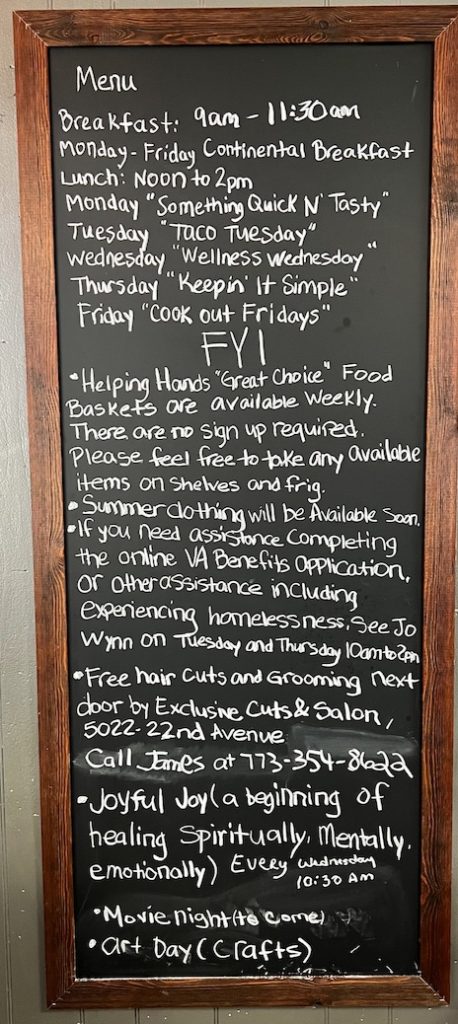 Menu
Breakfast: 9am - 11:30am
Monday - Friday Continental Breakfast
Lunch: Noon to 2pm
Monday "Something Quick N' Tasty"
Tuesday "Taco Tuesday"
Wednesday "Wellness Wednesday"
Thursday "Keepin' It Simple"
Friday "Cook out Fridays"
FYI
• Helping Hands "Great Choice" Food
Baskets are available weekly.
There are no sign up required.
Please feel free to take any available
items on shelves and frig.
• Summer clothing will be Available Soon.
• If you need assistance completing
the online VA Benefits application,
or other assistance including
experiencing homelessness, See Jo
Wynn on Tuesday and Thursday 10am to 2pm
• Free hair cuts and Grooming next
door by Exclusive Cuts & Salon,
5022-22nd Avenue
Call James at 773-354-8622
• Joyful Joy (a beginning of
healing Spiritually, Mentally,
emotionally) Every Wednesday
10:30 AM
• Movie night (to come)
• Art Day (Crafts)